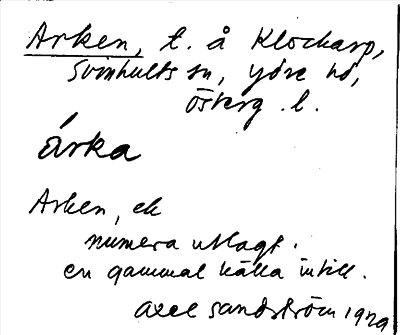 Arken, t. å Klockarp,
Svinhults sn, Ydre hd,
Österg. l.
árka
Arken, ek
numera utlagt.
en gammal källa intill.
Axel Sandström 1929